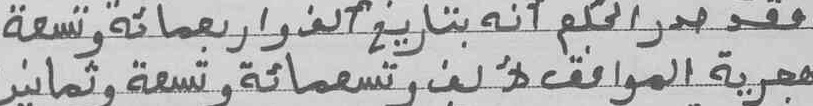 فقد صدر الحكم أنه بتاريخ ألف وأربعمائة وتسعة
هجرية الموافق لألف وتسعمائة وتسعة وثمانين